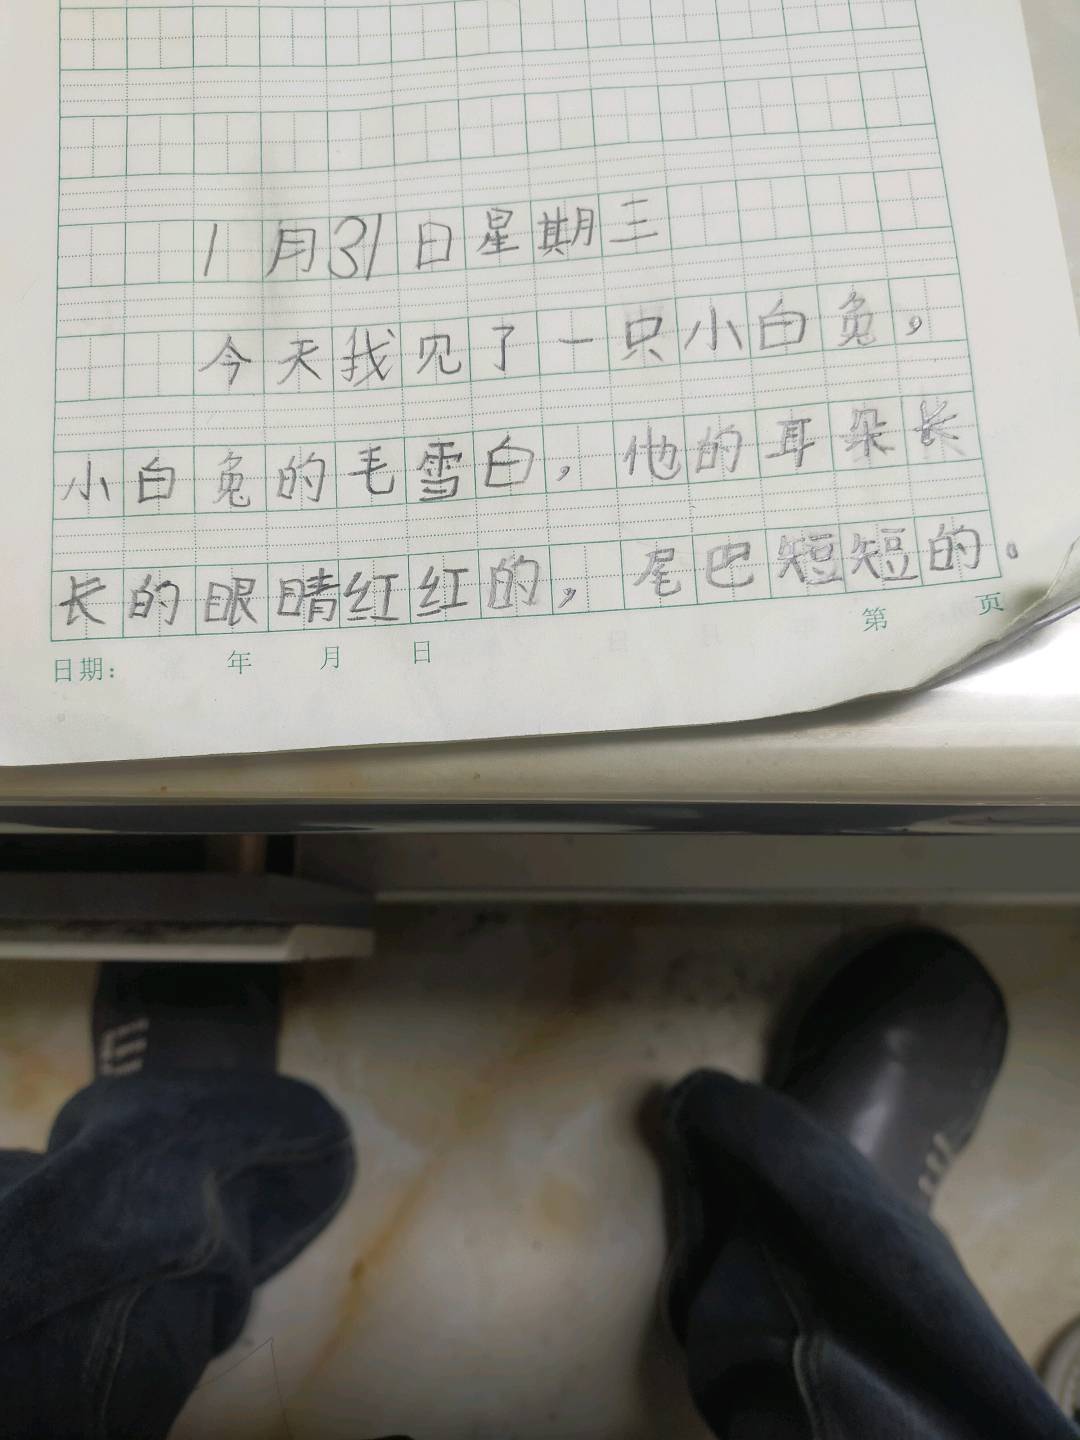 1月31日星期三
今天我见了一只小白兔。
小白兔的毛雪白，他的耳朵长
长的眼睛红红的，尾巴短短的。
日期： 年 月 日 第 页